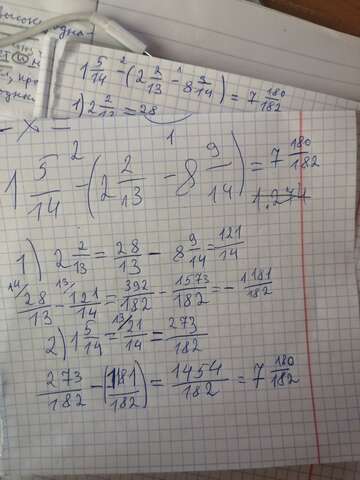 1 5/14 - (2 2/13 - 8 9/14) = 7 180/182
1) 2 2/13 = 28
- X -
2 1
1 5/14 - (2 2/13 - 8 9/14) = 7 180/182
1) 2 2/13 = 28/13 - 8 9/14 = 121/14
14/ 28/13 - 13/ 121/14 = 392/182 - 1573/182 = - 1181/182
2) 1 5/14 = 13/ 21/14 = 273/182
273/182 - (1181/182) = 1454/182 = 7 180/182